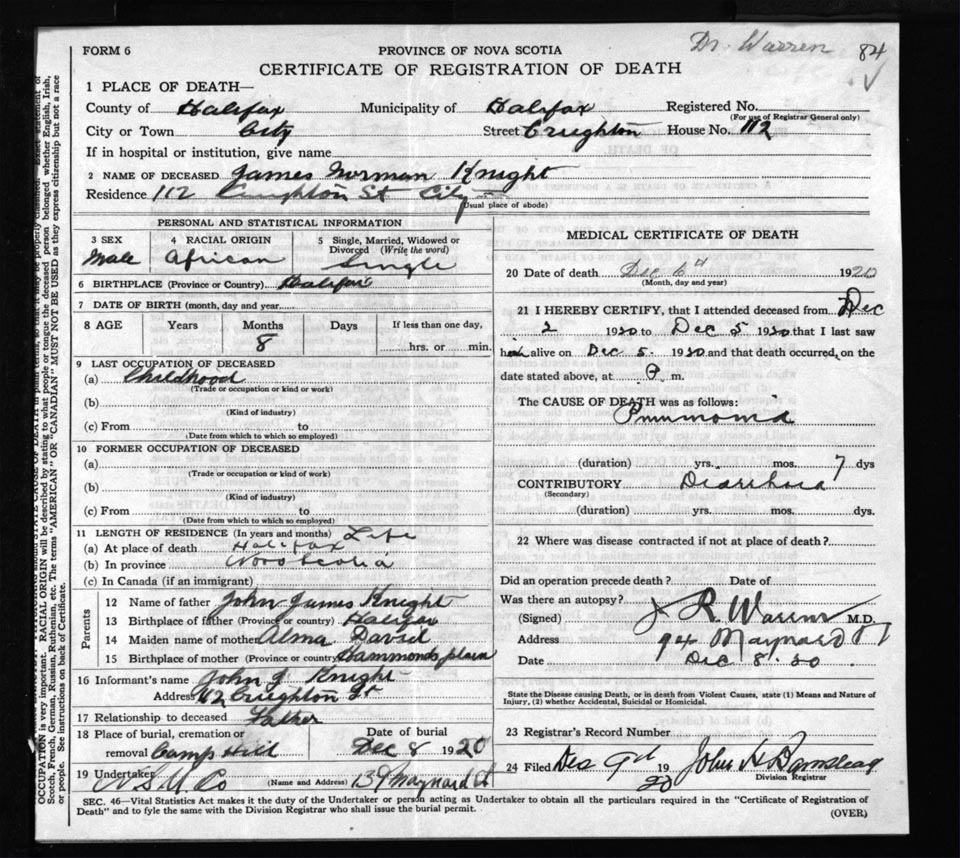 Dr. Warren 84
FORM 6
PROVINCE OF NOVA SCOTIA
CERTIFICATE OF REGISTRATION OF DEATH
1 PLACE OF DEATH—
County of Halifax Municipality of Halifax Registered No.
(For use of Registrar General only)
City or Town City Street Creighton House No. 112
If in hospital or institution, give name
2 NAME OF DECEASED James Norman Knight
Residence 112 Creighton St City
(Usual place of abode)
PERSONAL AND STATISTICAL INFORMATION
3 SEX Male
4 RACIAL ORIGIN African
5 Single, Married, Widowed or Divorced (Write the word) Single
6 BIRTHPLACE (Province or Country) Halifax
7 DATE OF BIRTH (month, day and year)
8 AGE Years Months Days If less than one day,
8 hrs. or min.
9 LAST OCCUPATION OF DECEASED
(a) Childhood
(Trade or occupation or kind or work)
(b)
(Kind of industry)
(c) From to
(Date from which to which so employed)
10 FORMER OCCUPATION OF DECEASED
(a)
(Trade or occupation or kind of work)
(b)
(Kind of industry)
(c) From to
(Date from which to which so employed)
11 LENGTH OF RESIDENCE (In years and months) Life
(a) At place of death Halifax
(b) In province Nova Scotia
(c) In Canada (if an immigrant)
Parents
12 Name of father John James Knight
13 Birthplace of father (Province or country) Halifax
14 Maiden name of mother Alma David
15 Birthplace of mother (Province or country) Hammonds plain
16 Informant's name John J Knight
Address 112 Creighton St
17 Relationship to deceased Father
18 Place of burial, cremation or removal Camp Hill
Date of burial Dec 8 1920
19 Undertaker N S U Co (Name and Address) 137 Maynard St
MEDICAL CERTIFICATE OF DEATH
20 Date of death Dec 6th 1920
(Month, day and year)
21 I HEREBY CERTIFY, that I attended deceased from Dec
2 1920 to Dec 5 1920 that I last saw
him alive on Dec 5. 1920 and that death occurred, on the
date stated above, at P. m.
The CAUSE OF DEATH was as follows:
Pnumonia
(duration) yrs. mos. 7 dys
CONTRIBUTORY Diarrhoea
(Secondary)
(duration) yrs. mos. dys.
22 Where was disease contracted if not at place of death?
Did an operation precede death? Date of
Was there an autopsy?
(Signed) J R Warren M.D.
Address Maynard St
Date Dec 8. 20
State the Disease causing Death, or in death from Violent Causes, state (1) Means and Nature of
Injury, (2) whether Accidental, Suicidal or Homicidal.
23 Registrar's Record Number
24 Filed Dec 9th 1920 John H Barnstead
Division Registrar
SEC. 46—Vital Statistics Act makes it the duty of the Undertaker or person acting as Undertaker to obtain all the particulars required in the "Certificate of Registration of
Death" and to fyle the same with the Division Registrar who shall issue the burial permit.
(OVER)
OCCUPATION is very important. RACIAL ORIGIN will be described by stating to what people or tongue the deceased person belonged whether English, Irish,
Scotch, French, German, Russian, Ruthenian, etc. The terms "AMERICAN" OR "CANADIAN" MUST NOT BE USED as they express citizenship but not a race
or people. See instructions on back of Certificate.